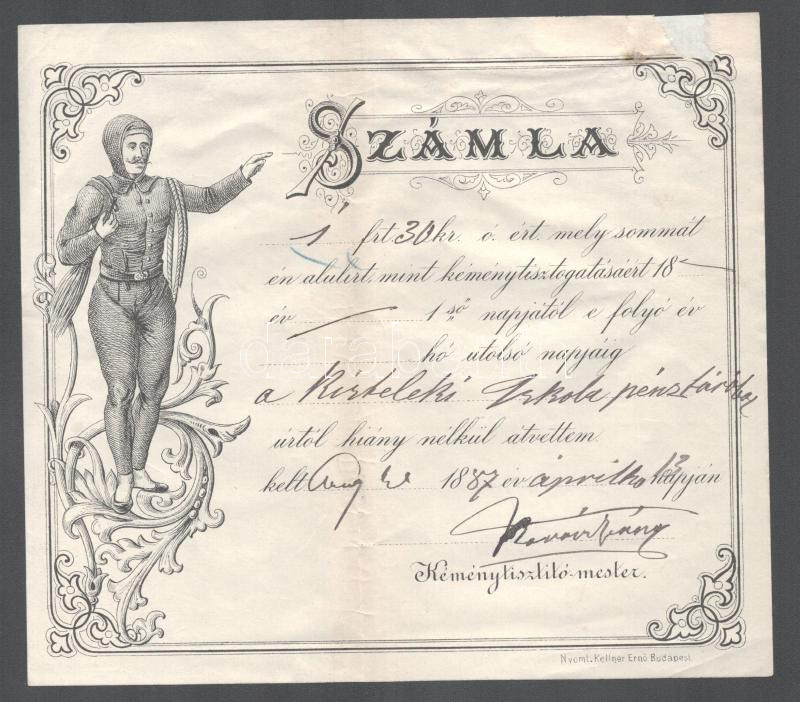 SZÁMLA
1 frt 30 kr. ó. ért. mely sommát
én alulirt, mint kéménytisztogatásaért 18
év 1 ső napjától e folyó év
hó utolsó napjáig
a Kisteleki Iskola pénztárából
úrtól hiány nélkül átvettem.
kelt 1887 év április hó 13 napján
Kéménytisztitó-mester.
Nyomt. Kellner Ernő Budapest.
darabanth